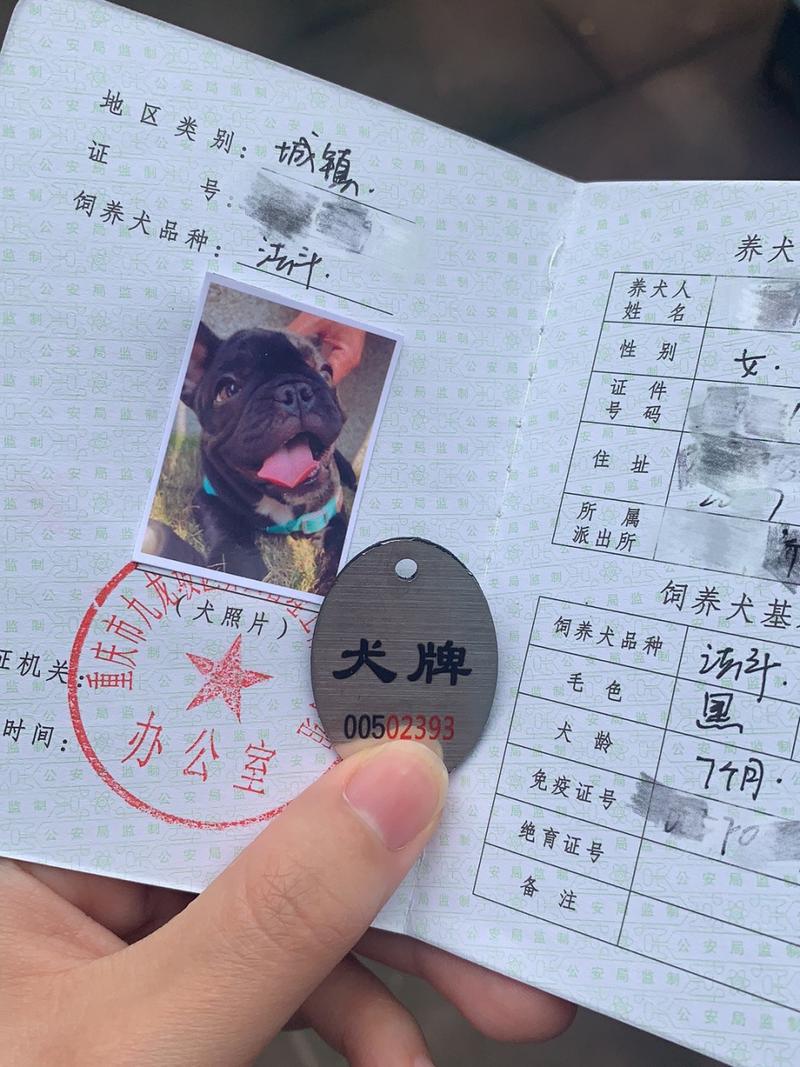 地区类别：城镇.
证 号：
饲养犬品种：法斗.
（犬照片）
证机关：
时间：
重庆市九龙坡区
办公室
犬牌
00502393
养犬
养犬人姓名
性别 女.
证件号码
住址
所属派出所
饲养犬基
饲养犬品种 法斗.
毛色 黑
犬龄 7个月.
免疫证号
绝育证号
备注
公安局监制